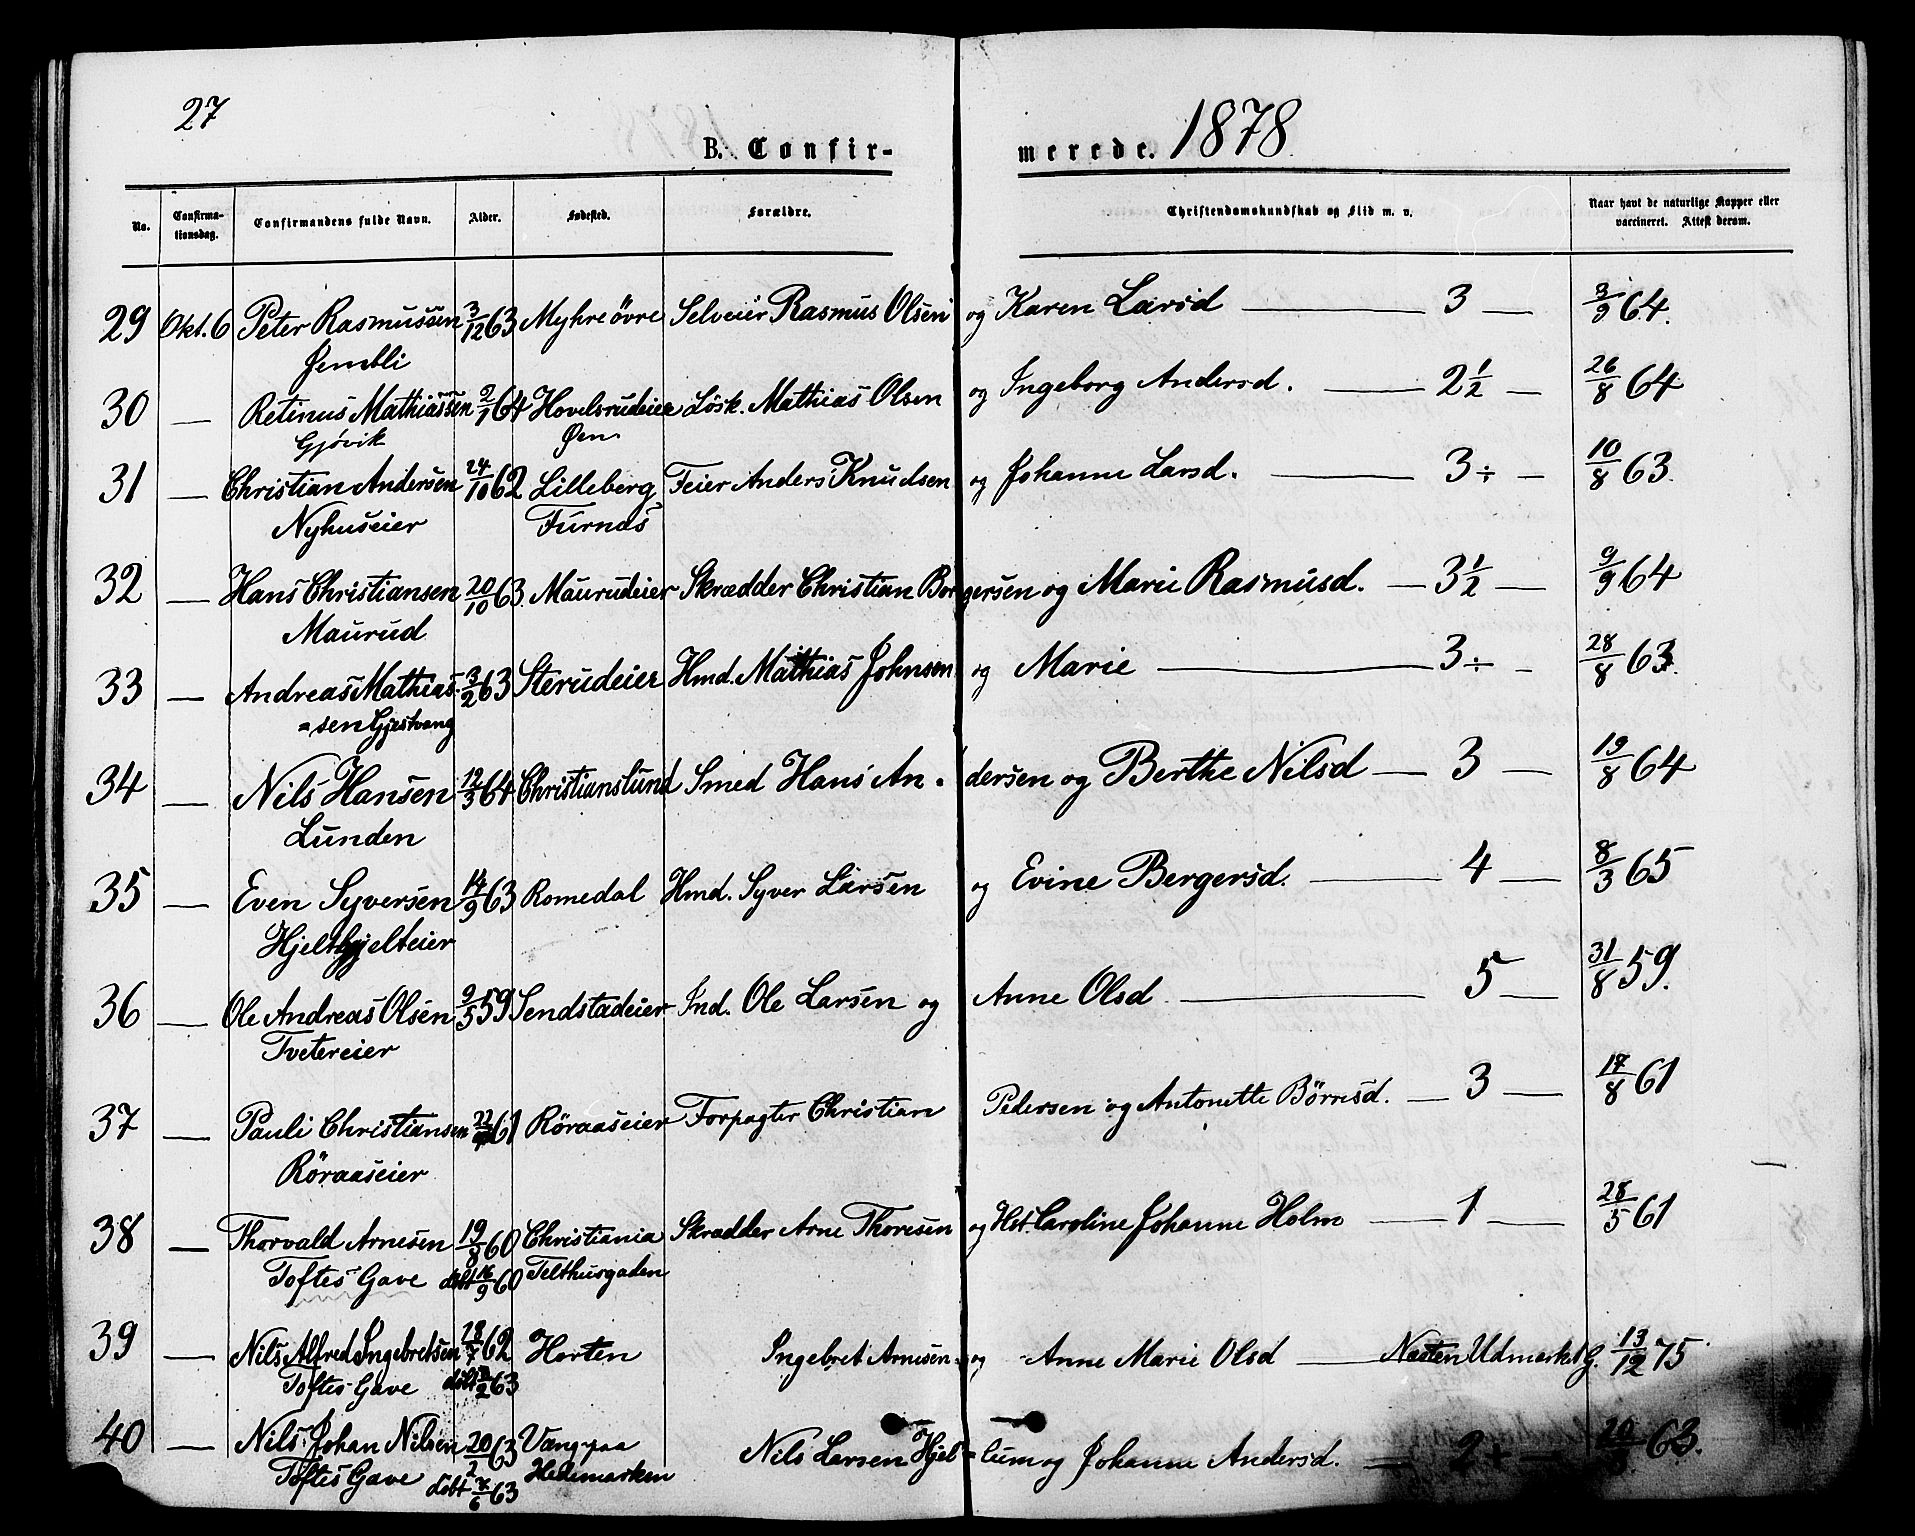 27
B. Confirmerede. 1878
No. Confirmationsdag. Confirmandens fulde Navn. Alder. Fødested. Forældre. Christendomskundskab og Flid m. v. Naar havt de naturlige Kopper eller vaccineret. Attest derom.
29 Okt. 6 Peter Rasmussen 3/12 63 Myhre övre Selveier Rasmus Olsen og Karen Larsd — 3 — 3/9 64.
Jembli
30 — Retinus Mathiassen 2/1 64 Hovelsrudeier Løsk. Mathias Olsen og Ingeborg Andersd. — 2 1/2 — 26/8 64
Gjövik Øen
31 — Christian Andersen 24/10 62 Lilleberg Feier Anders Knudsen og Johanne Larsd. — 3 ÷ — 10/8 63.
Nyhuseier Furnæs
32 — Hans Christiansen 20/10 63. Maurudeier Skrædder Christian Borgersen og Marie Rasmusd. — 3 1/2 — 9/9 64
Maurud
33 — Andreas Mathias- 3/2 63 Sterudeier Hmd. Mathias Johnsen og Marie — 3 ÷ — 28/8 63.
=sen Gjestvang
34 — Nils Hansen 12/3 64 Christianslund Smed Hans Andersen og Berthe Nilsd — 3 — 19/8 64
Lunden
35 — Even Syversen 14/9 63 Romedal Hmd. Syver Larsen og Evine Bergersd. — 4 — 8/3 65
Hjelthjelteier
36 — Ole Andreas Olsen 9/5 59 Sendstadeier Ind. Ole Larsen og Anne Olsd. — 5 — 31/8 59.
Tvetereier
37 — Pauli Christiansen 61 Röraaseier Forpagter Christian Pedersen og Antonette Börresd. — 3 — 17/8 61
Röraaseier
38 — Thorvald Arnesen 19/8 60 Christiania Skrædder Arne Thoresen og Hst. Caroline Johanne Holm — 1 — 28/5 61
Toftes Gave döbt 16/9 60 Telthusgaden
39 — Nils Alfred Ingebretsen 18/7 62 Horten Ingebret Arnesen og Anne Marie Olsd — Næsten Udmærket G. 13/12 75
Toftes Gave döbt 63
40 — Nils Johan Nilsen 20/2 63 Vang paa Nils Larsen Hjel=lum og Johanne Andersd. — 2 + — 63.
Toftes Gave döbt 7/6 63 Hedemarken